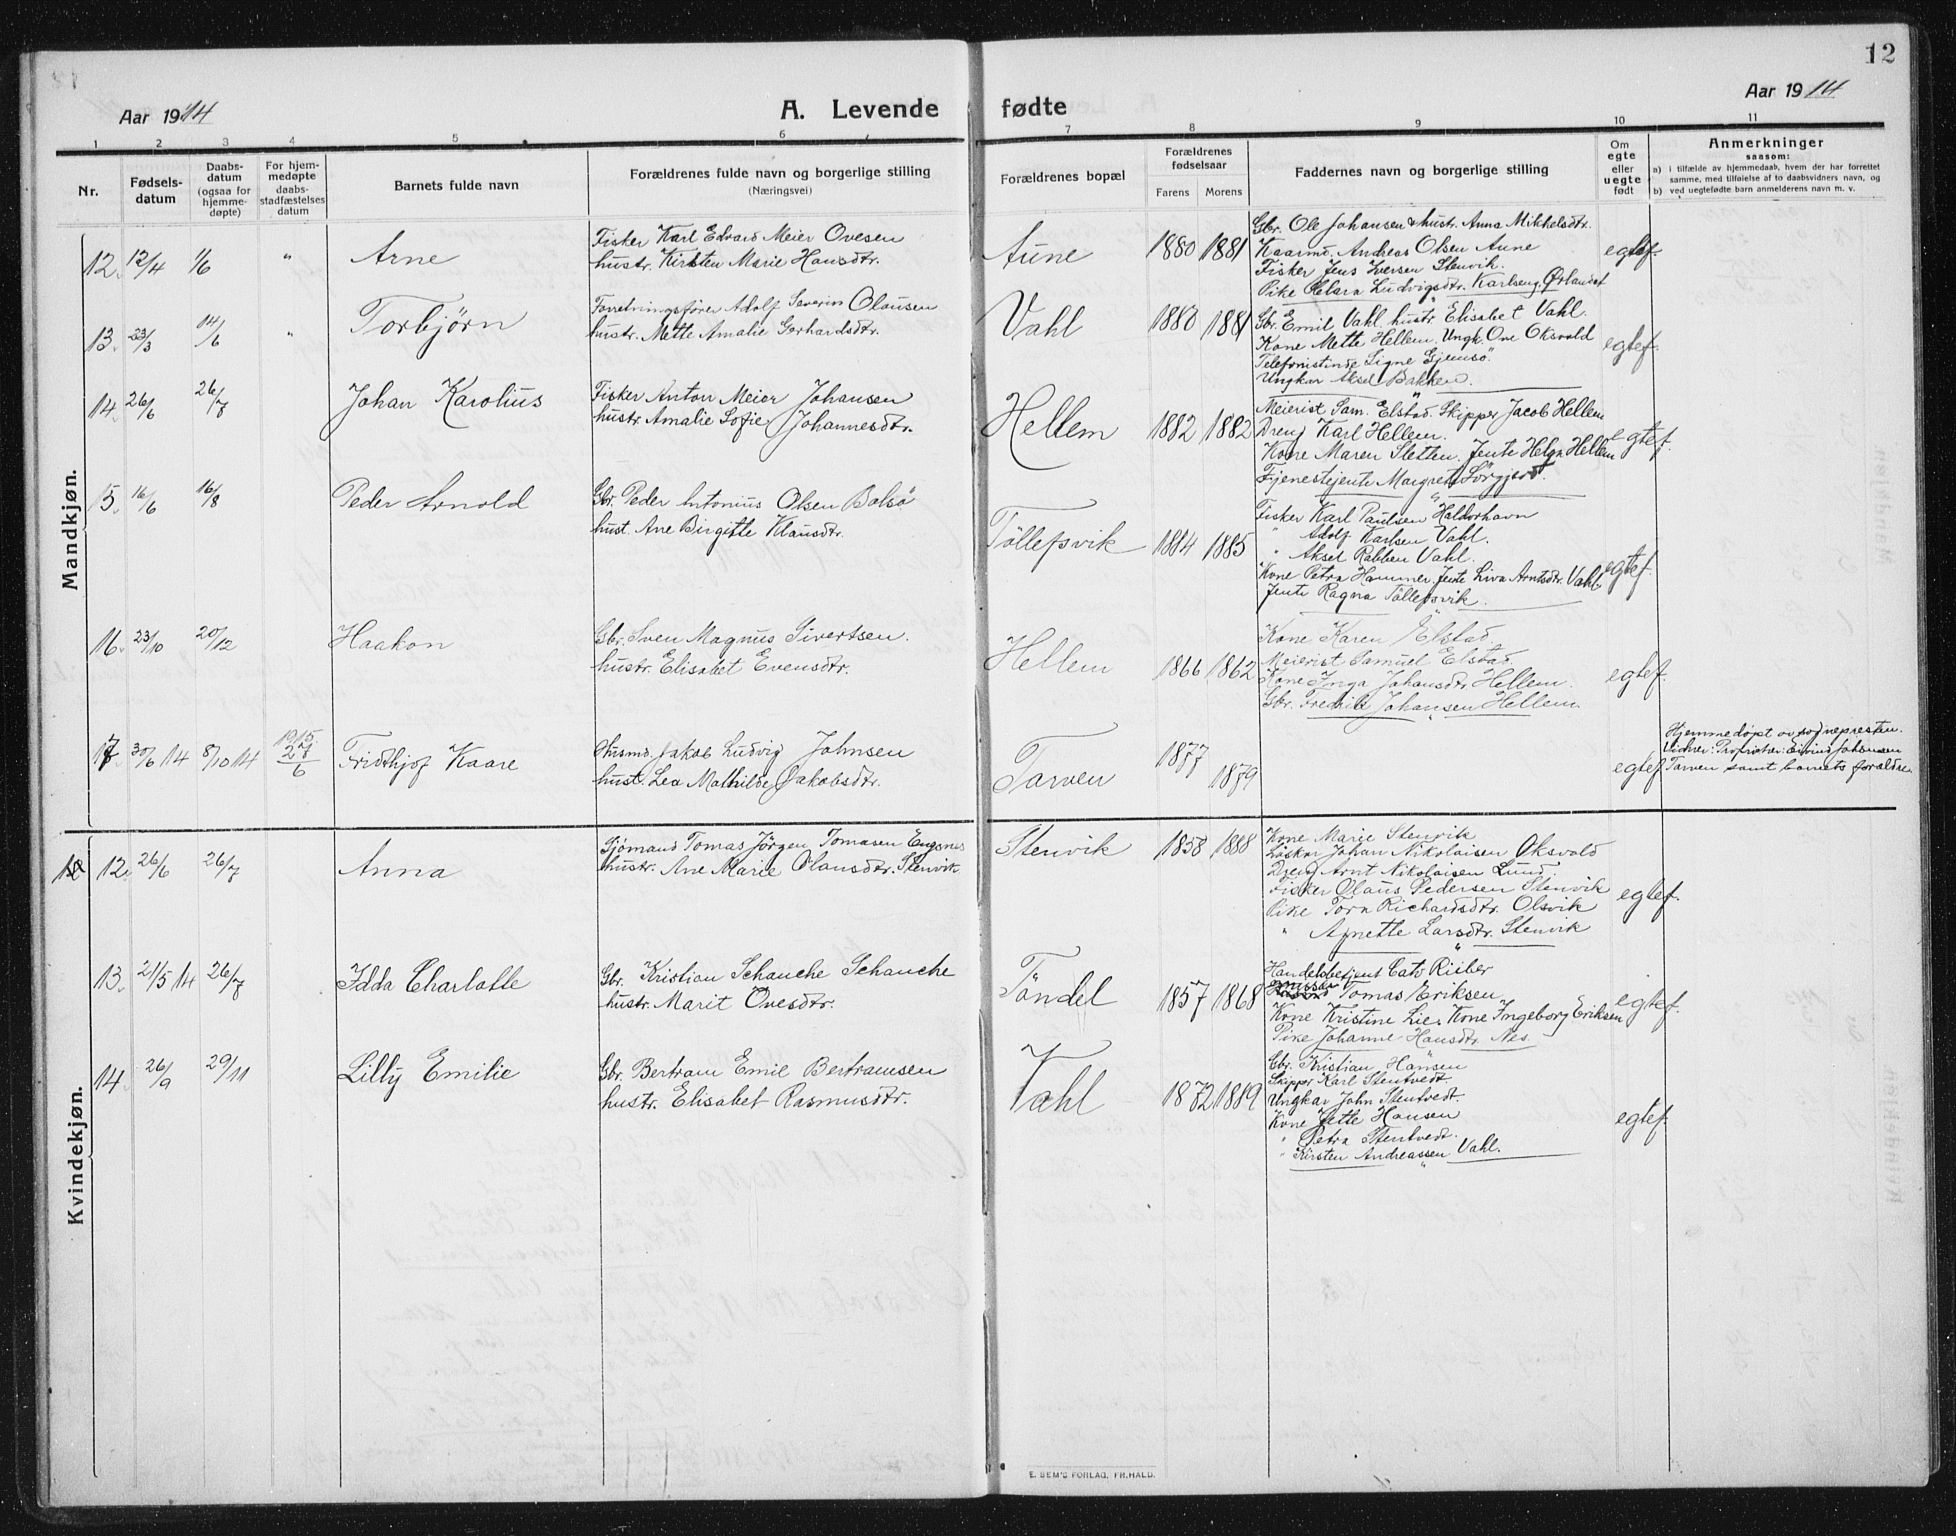 12
Aar 1914
A. Levende fødte
Aar 1914
1 2 3 4 5 6 7 8 9 10 11
Nr.
Fødsels-
datum
Daabs-
datum
(ogsaa for
hjemme-
døpte)
For hjem-
medøpte
daabs-
stadfæstelses
datum
Barnets fulde navn
Forældrenes fulde navn og borgerlige stilling
(Næringsvei)
Forældrenes bopæl
Forældrenes
fødselsaar
Farens Morens
Faddernes navn og borgerlige stilling
Om
egte
eller
uegte
født
Anmerkninger
saasom:
a) i tilfælde av hjemmedaab, hvem der har forrettet
samme, med tilføielse af to daabsvidners navn, og
b) ved uegtefødte barn anmelderens navn m. v.
Mandkjøn.
12. 12/4 1/6 " Arne
Fisker Karl Edvard Meier Ovesen
hustr. Kirsten Marie Hansdtr.
Aune 1880 1881
Gbr. Ole Johansen & hustr. Anna Mikkelsdtr.
Kaarmd. Andreas Olsen Aune
Fisker Jens Iversen Stenvik.
Pike Clara Ludvigsdtr. Karlseng Ørlandet
egtef.
13. 23/3 14/6 " Torbjørn
Forretningsfører Adolf Severin Olausen
hustr. Mette Amalie Gerhardsdtr.
Vahl 1880 1881
Gbr. Emil Vahl. hustr. Elisabet Vahl.
Kone Mette Hellem. Ungk. Ove Oksvold
Telefonistinde Signe Gjemsö.
Ungkar Aksel Bakken.
egtef.
14. 26/6 26/7 Johan Karolius
Fisker Anton Meier Johansen
hustr. Amalie Sofie Johannesdtr.
Hellem 1882 1882
Meierist Sam. Elstad. Skipper Jacob Hellem
Dreng Karl Hellem.
Kone Maren Sletten. Jente Helga Hellem
Tjenestejente Margrete
egtef.
15. 16/6 16/8 Peder Arnold
Gbr. Peder Antonius Olsen Balsö
hust. Ane Birgitte Klausdtr.
Töllefsvik 1884 1885
Fisker Karl Paulsen Haldorhavn
" Adolf Karlsen Vahl.
" Aksel Rabben Vahl.
Kone Petra Hammer, Jente Liva Arntsdtr. Vahl.
Jente Ragna Töllefsvik.
egtef.
16. 23/10 20/12 Haakon
Gbr. Sven Magnus Sivertsen.
hustr. Elisabet Evensdtr.
Hellem 1866 1862
Kone Karen Elstad.
Meierist Samuel Elstad.
Kone Inga Johansdtr. Hellem.
Gbr. Fredrik Johansen Hellem.
egtef.
17. 30/6 14 8/10 14 1915 27/6 Fridthjof Kaare
Husmd. Jakob Ludvig Johnsen
hust. Lea Mathilde Jakobsdtr.
Tarven 1877 1879
egtef.
Hjemmedöpt av sognepresten.
Vidner: Proprietær Eivind Johansen
Tarven samt barnets forældre.
Kvindekjøn.
12. 26/6 26/7 Anna
Sjömand Tomas Jörgen Tomasen Engsnes
hustr. Ane Marie Olausdtr. Stenvik
Stenvik 1858 1888
Kone Marie Stenvik
Johan Nikolaisen Oksvold
Dreng Arnt Nikolaisen Lund.
Fisker Olaus Pedersen Stenvik
Pike Tora Richardsdtr. Olsvik
" Agnette Larsdtr. Stenvik
egtef.
13. 21/5 14 26/7 Idda Charlotte
Gbr. Kristian Schanche Schanche
hustr. Marit Ovesdtr.
Töndel 1857 1868
Handelsbetjent Cato Risber
Tomas Eriksen
Kone Kristine Lie, Kone Ingeborg Eriksen
Pike Johanne Hansdtr. Nes.
egtef.
14. 26/9 29/11 Lilly Emilie
Gbr. Bertram Emil Bertramsen
hustr. Elisabet Rasmusdtr.
Vahl 1872 1889
Gbr. Kristian Hansen
Skippr. Karl Stentvedt.
Ungkar John Stentvedt.
Kone Jette Hansen
" Petra Stentvedt.
" Kirsten Andreassen Vahl.
egtef.
E. SEM'S FORLAG, FR.HALD.